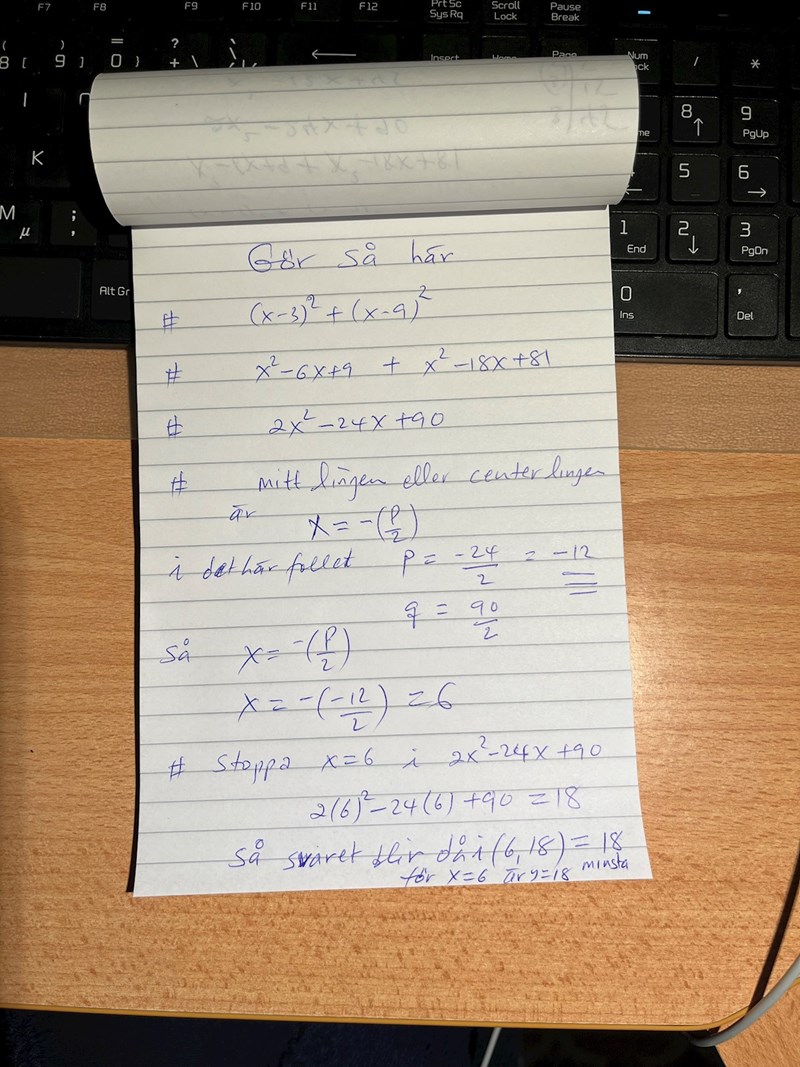 F7 F8 F9 F10 F11 F12 Prt Sc Scroll Pause
Sys Rq Lock Break
( ) = ? `
8 [ 9 ] 0 } + \ Insert Home Page Num / *
Lock
8 9
PgUp
K 5 6
M ; 1 2 3
µ , End PgDn
Alt Gr 0 ,
Ins Del
Gör så här
# (x-3)² + (x-9)²
# x²-6x+9 + x²-18x+81
# 2x²-24x+90
# mitt lingen eller center lingen
är x = -(P/2)
i det här fallet P = -24/2 = -12
q = 90/2
Så x = -(P/2)
x = -(-12/2) = 6
# Stoppa x=6 i 2x²-24x+90
2(6)²-24(6)+90 = 18
Så svaret blir då i (6,18) = 18
för x=6 är y=18 minsta